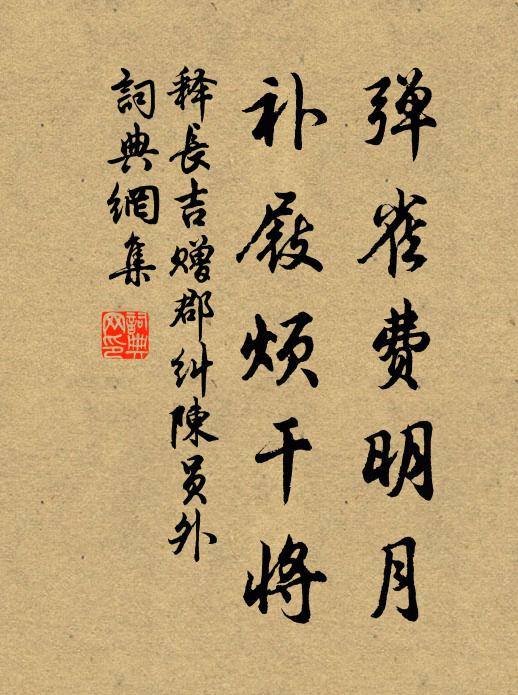 弹雀费明月
补屐烦干将
释長吉赠郡纠陳员外
詞典網集
詞典
网印